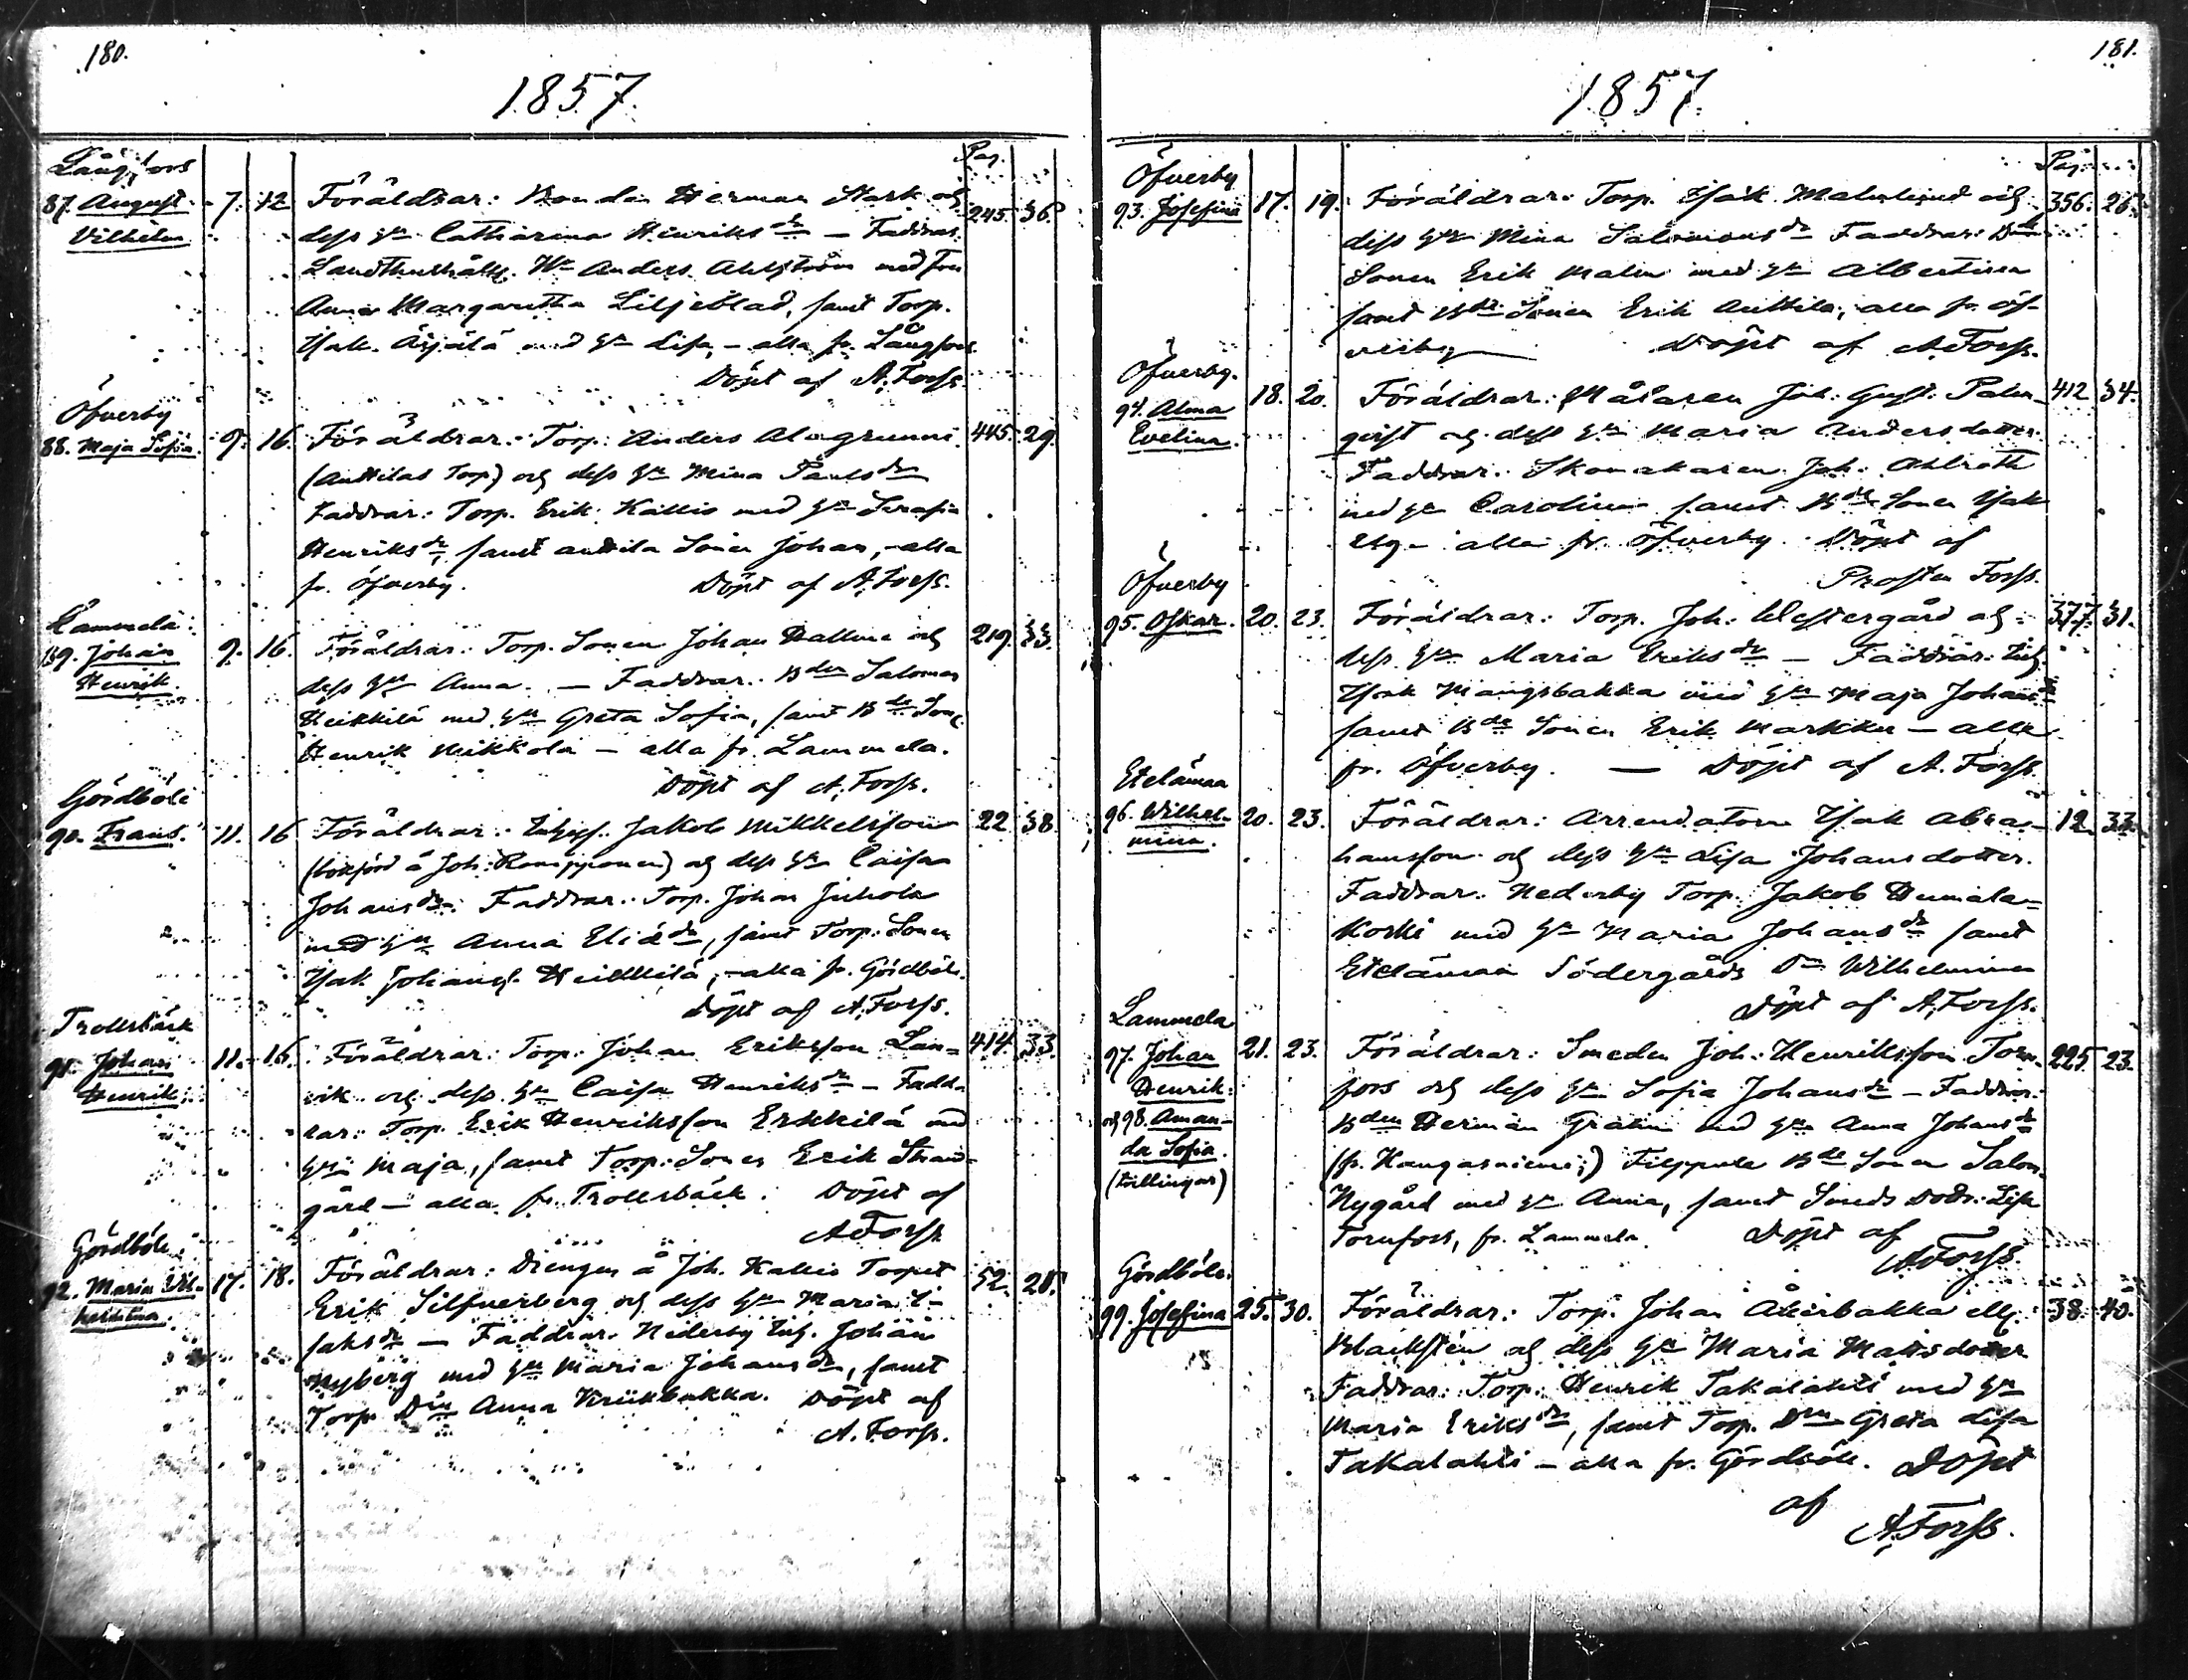 180.
1857.
Pag.
Långfors
87. August Vilhelm 7. 12 Föräldrar: Bonden Herman Stark och 245. 36.
dess h:u Catharina Henriks dr — Faddrar:
Landthush:åll. W. Anders Ahlström med fru
Anna Margaretha Liljeblad, samt Torp.
Isak Äijälä med h:u Lisa, – alla fr. Långfors
Döpt af A. Forss.
Öfverby
88. Maja Sofia. 9. 16. Föräldrar: Torp. Anders Alagrunni 445. 29.
(Anttilas Torp) och dess h:u Mina Pauls dr
Faddrar: Torp. Erik Kallio med h:u Serafia
Henriks dr, samt Anttila Sonen Johan, – alla
fr. Öfverby. Döpt af A. Forss.
Lammela
89. Johan Henrik. 9. 16. Föräldrar: Torp. Sonen Johan och 219. 33.
dess h:u Anna. — Faddrar: Bden Salomon
Heikkilä med h:u Greta Sofia, samt Bde Son
Henrik Mikkola – alla fr. Lammela.
Döpt af A. Forss.
Gördböle
90. Frans. 11. 16 Föräldrar: Inhys. Jakob Mikkelsson 22 38.
(bokförd å Joh. ) och dess h:u Caisa
Johans dr. Faddrar: Torp. Johan Juhola
med h:u Anna Eliæ dr, samt Torp. Sonen
Isak Johanss. Heikkilä, – alla fr. Gördböle.
Döpt af A. Forss.
Trollsbäck
91. Johan Henrik. 11. 16. Föräldrar: Torp. Johan Eriksson Lan- 414. 33
vik och dess h:u Caisa Henriks dr – Fadd-
rar: Torp. Erik Henriksson Erkkilä med
h:u Maja, samt Torp. Sonen Erik Strand-
gård – alla fr. Trollsbäck. Döpt af
A Forss
Gördböle
92. Maria Vil-helmina. 17. 18. Föräldrar: Drengen å Joh. Kallis Torpet 52. 28.
Erik Silfverberg och dess h:u Maria I-
saks dr — Faddrar: Nederby Inh. Johan
Nyberg med h:u Maria Johans dr, samt
Torp. D:n Anna Kriikbakka. Döpt af
A. Forss.
181.
1857.
Pag.
Öfverby
93. Josefina 17. 19. Föräldrar: Torp. Isak Malmlund och 356. 26.
dess h:u Mina Salomons dr Faddrar: Bde
Sonen Erik Malm med h:u Albertina
samt Bde Sonen Erik Anttila, alla fr. Öf-
verby — Döpt af A. Forss.
Öfverby.
94. Alma Evelina. 18. 20. Föräldrar: Målaren Joh. Gust. Palm- 412 34.
qvist och dess h:u Maria Andersdotter.
Faddrar: Skomakaren Joh. Ahlroth
med h:u Carolina samt Bde Sonen Isak
alla fr. Öfverby. Döpt af
Prosten Forss.
Öfverby
95. Oskar. 20. 23. Föräldrar: Torp. Joh: Westergård och 377 31.
dess h:u Maria Eriks dr — Faddrar: Inh.
Isak Mangsbakka med h:u Maja Johans dr
samt Bde Sonen Erik Markku – alla
fr. Öfverby. — Döpt af A. Forss.
Etelämaa
96. Wilhel-mina. 20. 23. Föräldrar: Arrendatorn Isak Abra- 12. 33.
hamsson och dess h:u Lisa Johansdotter.
Faddrar: Nederby Torp. Jakob Humala-
koski med h:u Maria Johans dr samt
Etelämaa Södergårds D:n Wilhelmina
Döpt af A. Forss.
Lammela
97. Johan Henrik. och 98. Aman-da Sofia. (tvillingar) 21. 23. Föräldrar: Smeden Joh: Henriksson Torn- 225. 23.
fors och dess h:u Sofia Johans dr – Faddrar:
Bden Herman Grahn med h:u Anna Johans dr
(fr. Kangasniemi;) Filppula Bde Sonen Salom.
Nygård med h:u Anna, samt Smeds Dodr. Lisa
Tornfors, fr. Lammela. Döpt af
A Forss.
Gördböle
99. Josefina 25. 30. Föräldrar: Torp. Johan Åkerbakka ell. 38. 40.
och dess h:u Maria Mattsdotter
Faddrar: Torp. Henrik Takalahti med h:u
Maria Eriks dr, samt Torp. D:n Greta Lisa
Takalahti – alla fr. Gördböle. Döpt
af
A. Forss.